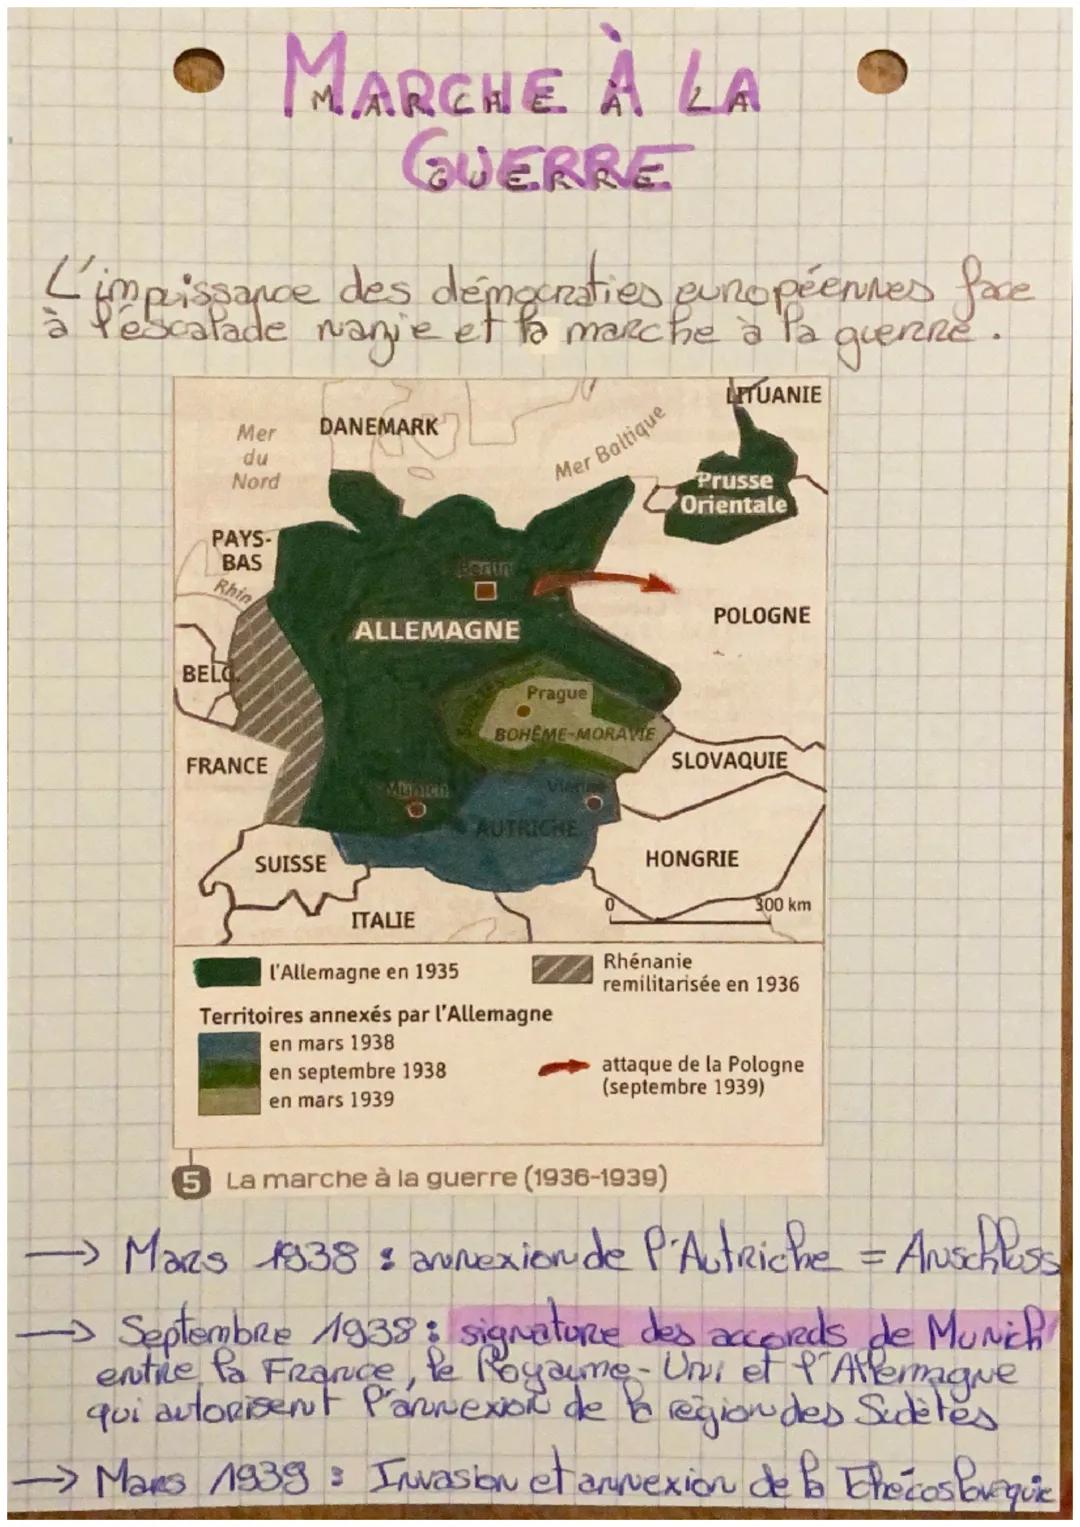 MARCHE À LA
GUERRE
L'impuissance des démocraties européennes face
à l'escalade nazie et la marche à la guerre.
LITUANIE
DANEMARK
Mer
du
Nord
Mer Baltique
Prusse
Orientale
PAYS-
BAS
Rhin
Berlin
POLOGNE
ALLEMAGNE
BELG.
Prague
BOHÊME-MORAVIE
FRANCE
SLOVAQUIE
Munich
Vienne
AUTRICHE
SUISSE
HONGRIE
0 300 km
ITALIE
l'Allemagne en 1935
Rhénanie
remilitarisée en 1936
Territoires annexés par l'Allemagne
en mars 1938
en septembre 1938
en mars 1939
attaque de la Pologne
(septembre 1939)
5 La marche à la guerre (1936-1939)
→ Mars 1938 : annexion de l'Autriche = Anschluss
→ Septembre 1938 : signature des accords de Munich
entre la France, le Royaume-Uni et l'Allemagne
qui autorisent l'annexion de la région des Sudètes
→ Mars 1939 : Invasion et annexion de la Tchécoslovaquie